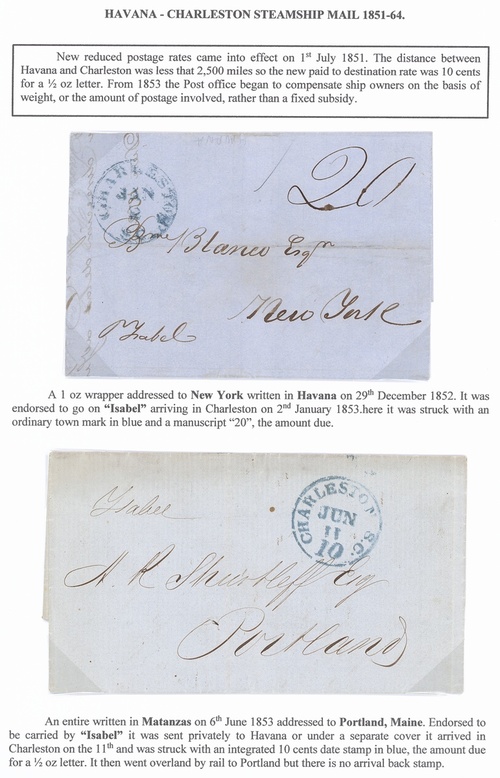 HAVANA - CHARLESTON STEAMSHIP MAIL 1851-64.
New reduced postage rates came into effect on 1st July 1851. The distance between
Havana and Charleston was less that 2,500 miles so the new paid to destination rate was 10 cents
for a ½ oz letter. From 1853 the Post office began to compensate ship owners on the basis of
weight, or the amount of postage involved, rather than a fixed subsidy.
CHARLESTON
20
Blanco Esqr
New York
Isabel
A 1 oz wrapper addressed to New York written in Havana on 29th December 1852. It was
endorsed to go on “Isabel” arriving in Charleston on 2nd January 1853.here it was struck with an
ordinary town mark in blue and a manuscript “20”, the amount due.
Isabel
CHARLESTON S.C.
JUN
11
10
Esq
Portland
An entire written in Matanzas on 6th June 1853 addressed to Portland, Maine. Endorsed to
be carried by “Isabel” it was sent privately to Havana or under a separate cover it arrived in
Charleston on the 11th and was struck with an integrated 10 cents date stamp in blue, the amount due
for a ½ oz letter. It then went overland by rail to Portland but there is no arrival back stamp.